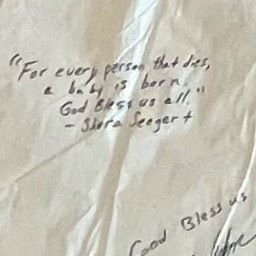 "For every person that dies,
a baby is born.
God Bless us all."
- Shera Seegert
Good Bless us